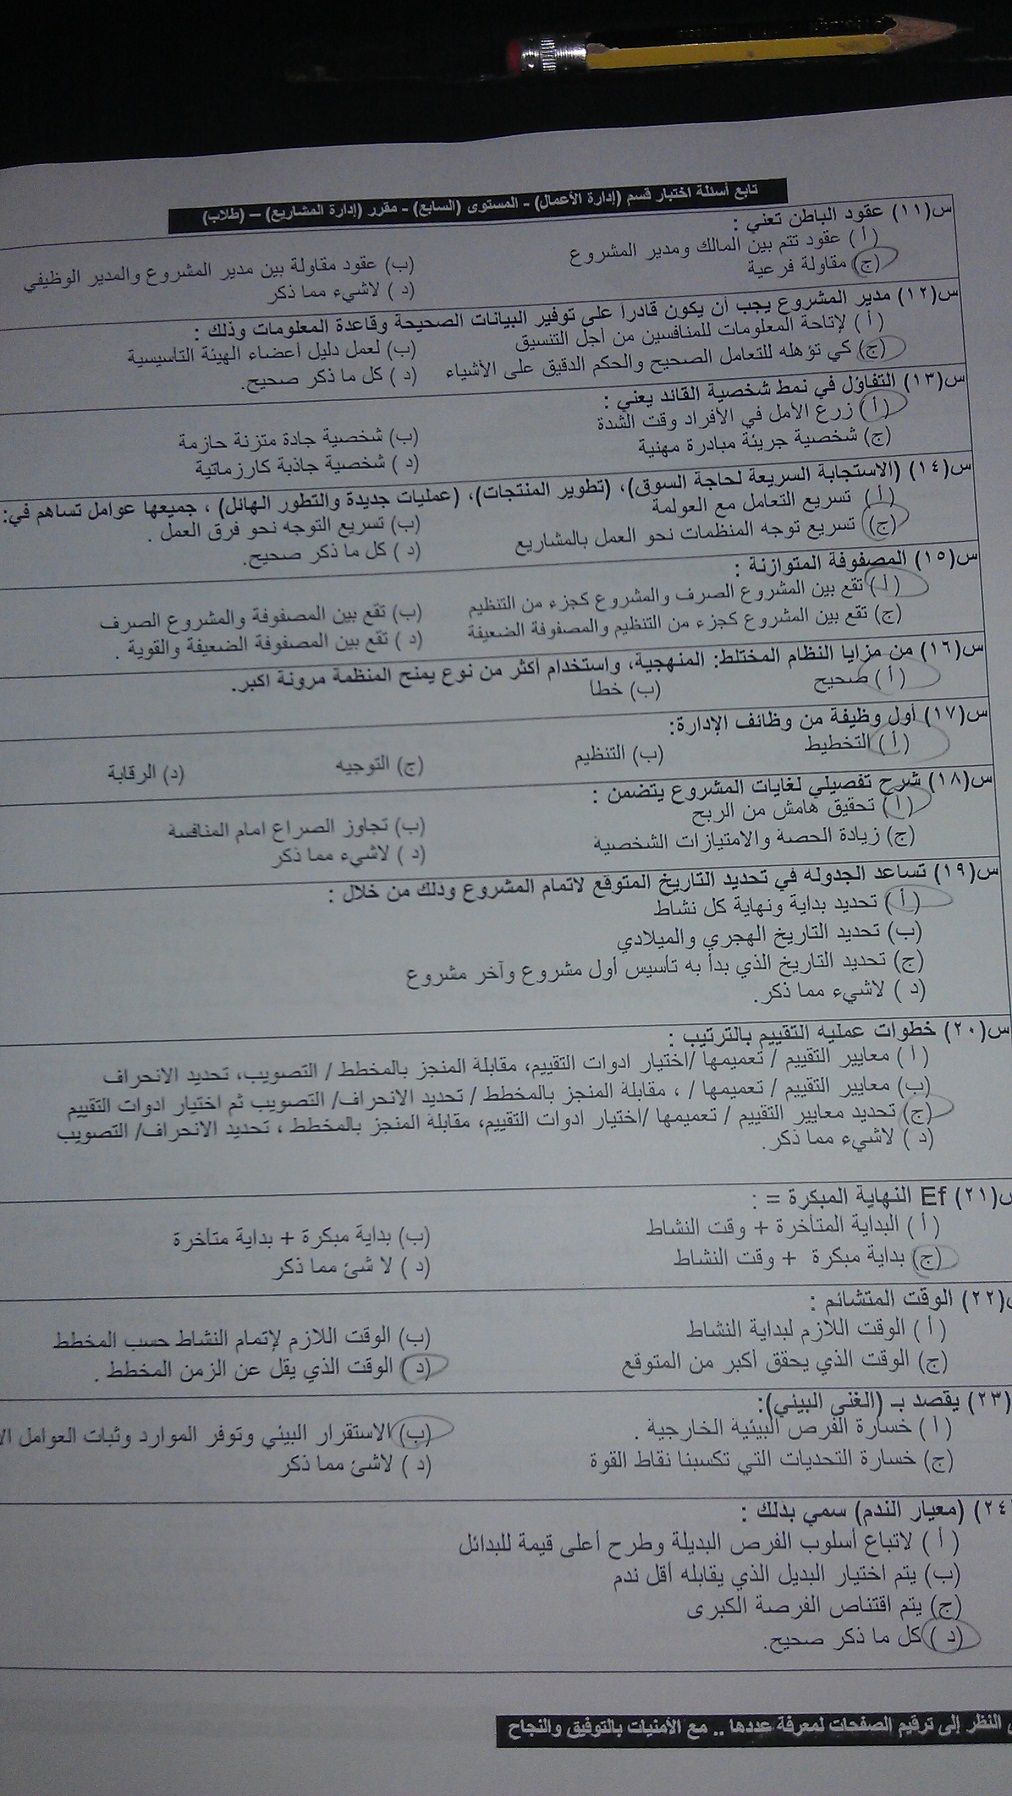 تابع أسئلة اختبار قسم (إدارة الأعمال) - المستوى (السابع) - مقرر (إدارة المشاريع) – (طلاب)
س(١١) عقود الباطن تعني :
(أ) عقود تتم بين المالك ومدير المشروع
(ب) عقود مقاولة بين مدير المشروع والمدير الوظيفي
(ج) مقاولة فرعية
(د) لاشيء مما ذكر
س(١٢) مدير المشروع يجب أن يكون قادرا على توفير البيانات الصحيحة وقاعدة المعلومات وذلك :
(أ) لإتاحة المعلومات للمنافسين من أجل التنسيق
(ب) لعمل دليل أعضاء الهيئة التأسيسية
(ج) كي تؤهله للتعامل الصحيح والحكم الدقيق على الأشياء
(د) كل ما ذكر صحيح.
س(١٣) التفاؤل في نمط شخصية القائد يعني :
(أ) زرع الامل في الأفراد وقت الشدة
(ب) شخصية جادة متزنة حازمة
(ج) شخصية جريئة مبادرة مهنية
(د) شخصية جاذبة كارزماتية
س(١٤) (الاستجابة السريعة لحاجة السوق)، (تطوير المنتجات)، (عمليات جديدة والتطور الهائل) ، جميعها عوامل تساهم في:
(أ) تسريع التعامل مع العولمة
(ب) تسريع التوجه نحو فرق العمل .
(ج) تسريع توجه المنظمات نحو العمل بالمشاريع
(د) كل ما ذكر صحيح.
س(١٥) المصفوفة المتوازنة :
(أ) تقع بين المشروع الصرف والمشروع كجزء من التنظيم
(ب) تقع بين المصفوفة والمشروع الصرف
(ج) تقع بين المشروع كجزء من التنظيم والمصفوفة الضعيفة
(د) تقع بين المصفوفة الضعيفة والقوية .
س(١٦) من مزايا النظام المختلط: المنهجية، واستخدام أكثر من نوع يمنح المنظمة مرونة اكبر.
(أ) صحيح (ب) خطأ
س(١٧) أول وظيفة من وظائف الإدارة:
(أ) التخطيط (ب) التنظيم (ج) التوجيه (د) الرقابة
س(١٨) شرح تفصيلي لغايات المشروع يتضمن :
(أ) تحقيق هامش من الربح
(ب) تجاوز الصراع امام المنافسة
(ج) زيادة الحصة والامتيازات الشخصية
(د) لاشيء مما ذكر
س(١٩) تساعد الجدوله في تحديد التاريخ المتوقع لاتمام المشروع وذلك من خلال :
(أ) تحديد بداية ونهاية كل نشاط
(ب) تحديد التاريخ الهجري والميلادي
(ج) تحديد التاريخ الذي بدأ به تأسيس أول مشروع وآخر مشروع
(د) لاشيء مما ذكر.
س(٢٠) خطوات عمليه التقييم بالترتيب :
(أ) معايير التقييم / تعميمها /اختيار ادوات التقييم، مقابلة المنجز بالمخطط / التصويب، تحديد الانحراف
(ب) معايير التقييم / تعميمها / ، مقابلة المنجز بالمخطط / تحديد الانحراف/ التصويب ثم اختيار ادوات التقييم
(ج) تحديد معايير التقييم / تعميمها /اختيار ادوات التقييم، مقابلة المنجز بالمخطط ، تحديد الانحراف/ التصويب
(د) لاشيء مما ذكر.
س(٢١) Ef النهاية المبكرة = :
(أ) البداية المتأخرة + وقت النشاط
(ب) بداية مبكرة + بداية متأخرة
(ج) بداية مبكرة + وقت النشاط
(د) لا شئ مما ذكر
(٢٢) الوقت المتشائم :
(أ) الوقت اللازم لبداية النشاط
(ب) الوقت اللازم لإتمام النشاط حسب المخطط
(ج) الوقت الذي يحقق أكبر من المتوقع
(د) الوقت الذي يقل عن الزمن المخطط .
(٢٣) يقصد بـ (الغنى البيئي):
(أ) خسارة الفرص البيئية الخارجية .
(ب) الاستقرار البيئي وتوفر الموارد وثبات العوامل
(ج) خسارة التحديات التي تكسبنا نقاط القوة
(د) لاشئ مما ذكر
٢٤) (معيار الندم) سمي بذلك :
(أ) لاتباع أسلوب الفرص البديلة وطرح أعلى قيمة للبدائل
(ب) يتم اختيار البديل الذي يقابله أقل ندم
(ج) يتم اقتناص الفرصة الكبرى
(د) كل ما ذكر صحيح.
النظر إلى ترقيم الصفحات لمعرفة عددها .. مع الأمنيات بالتوفيق والنجاح